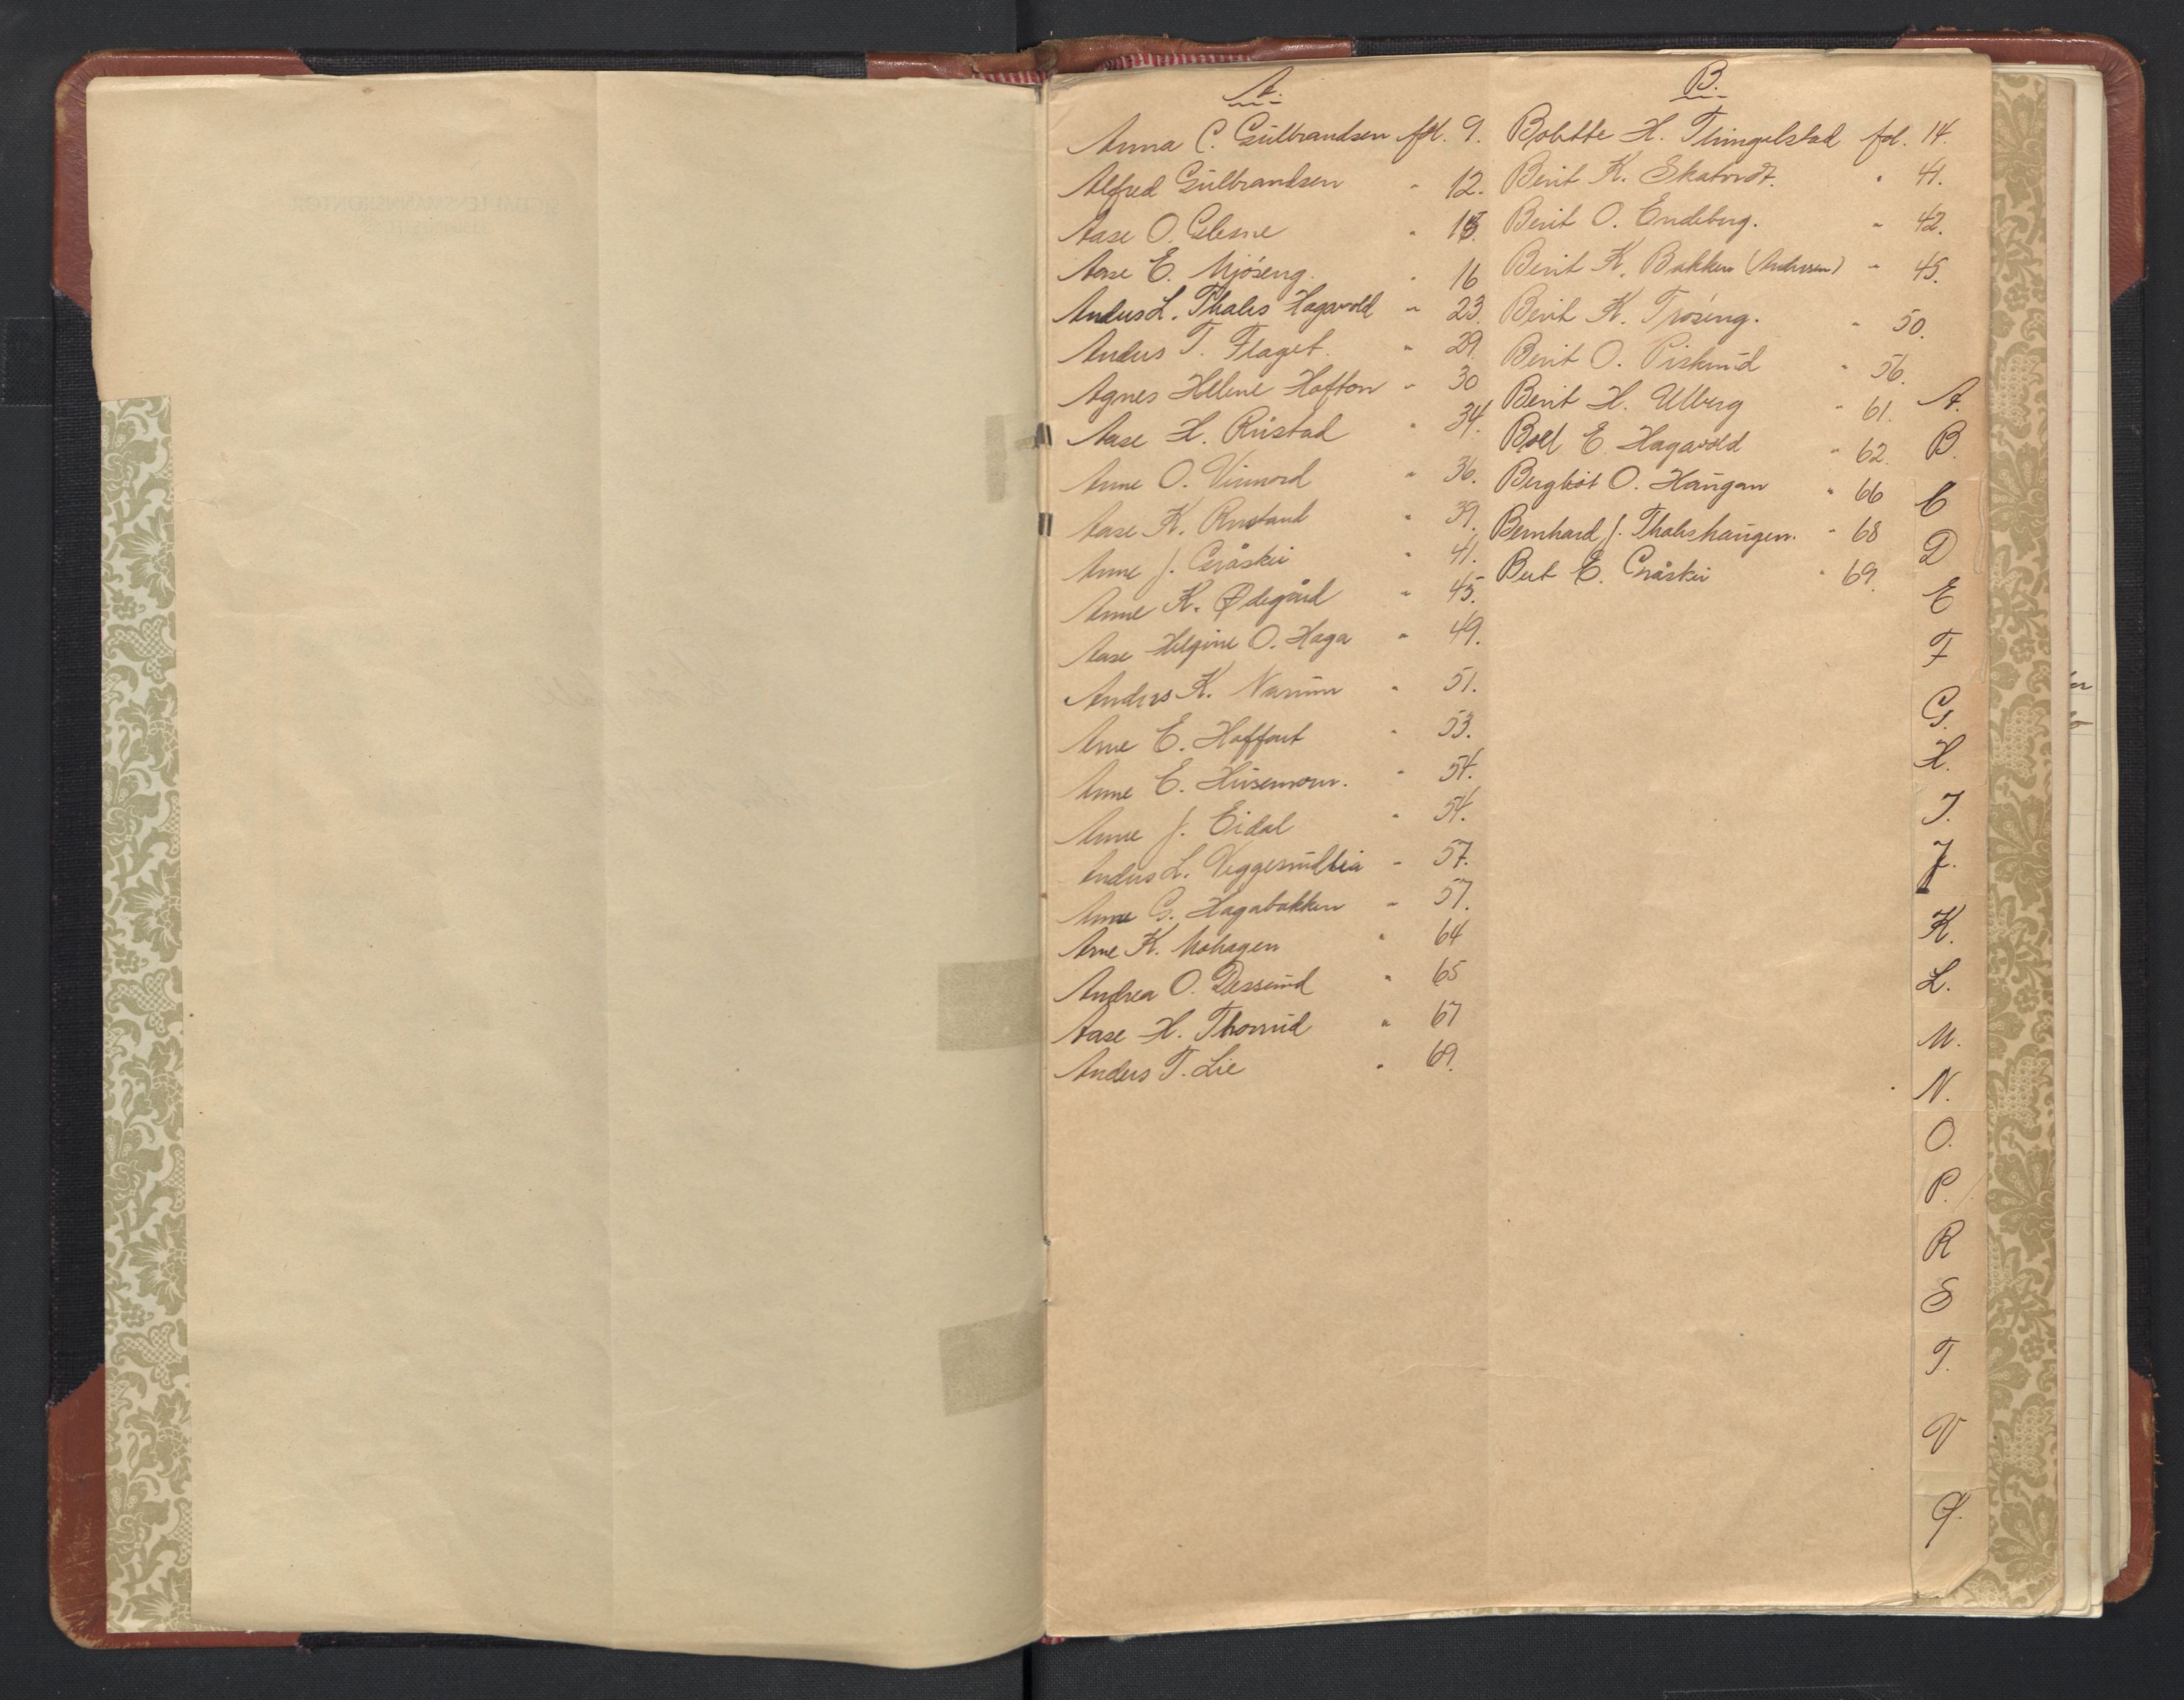 A.
Anna C. Gulbrandsen fol. 9.
Alfred Gulbrandsen " 12.
Aase O. Glesne " 13.
Aase E. Mjøseng. " 16
Anders L. Thales Hagavold " 23.
Anders T. Flaget. " 29.
Agnes Helene Hafton " 30
Aase H. Rustad " 34.
Anne O. Vinnord " 36.
Aase K. Rustand " 39.
Anne J. Gråskei " 41.
Anne K. Ødegård " 45.
Aase Helgine O. Haga " 49.
Anders K. Narum " 51.
Arne E. Haffart " 53.
Anne E. Husemoen. " 54.
Anne J. Eidal " 54.
Anders L. Veggesrudlia " 57.
Anne G. Hagabakken " 57.
Arne K. Mohagen " 64
Andrea O. Dessrud " 65
Aase H. Thorrud " 67
Anders T. Lie " 69.
B.
Bolette H. Thingelstad fol. 14.
Berit K. " 41.
Berit O. Endeberg. " 42.
Berit K. Bakken (Andersen) " 45.
Berit K. Trøseng. " 50.
Berit O. Piskrud " 56.
Berit H. Ulberg " 61.
Boel E. Hagavold " 62.
Bergliot O. Haugan " 66
Bernhard J. Thaleshaugen. " 68
Berit E. Gråskei " 69.
A.
B.
C
D
E
F
G.
H.
I.
J.
K.
L.
M.
N.
O.
P.
R
S
T.
V